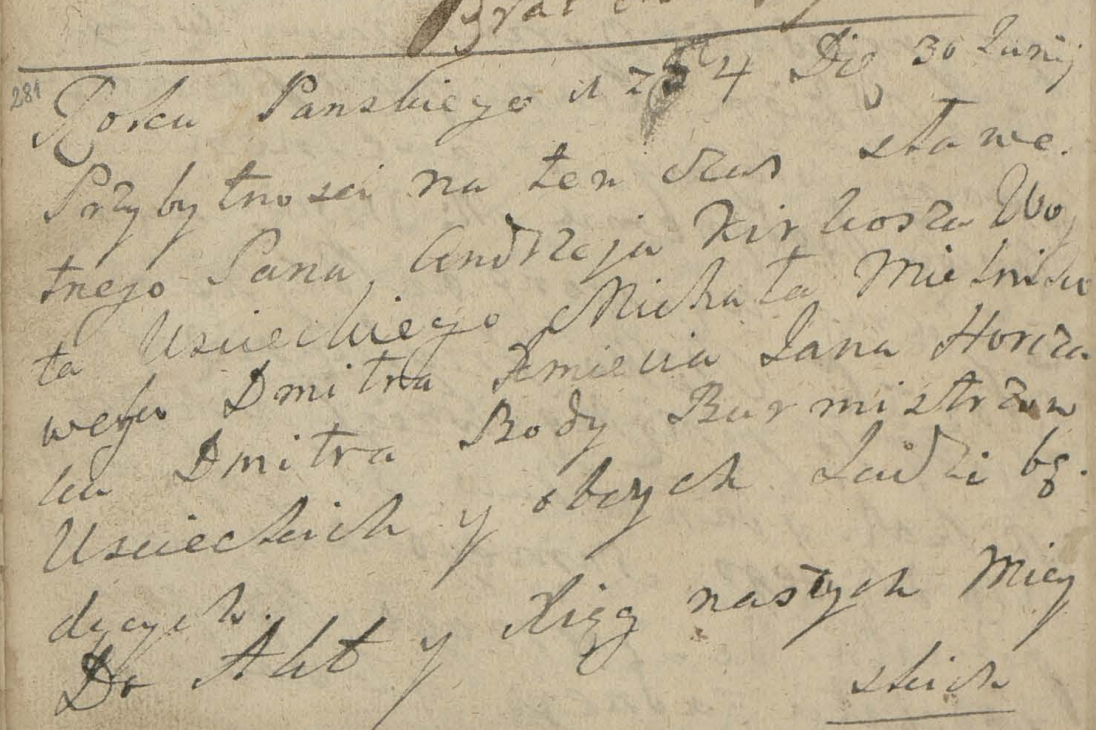 281
Roku Panskiego 17 4 Die 30 Junij
Przybytnosci na ten czas sławe.
tnego Pana Andrzeja Woj
ta Uscieckiego Michała Mielniko
wego Dmitra Kmiecia Jana Horcza
ka Dmitra Body Burmistrzow
Uscieckich y obcych Ludzi bę.
dących.
Do Akt y Xięg naszych Miey
skich